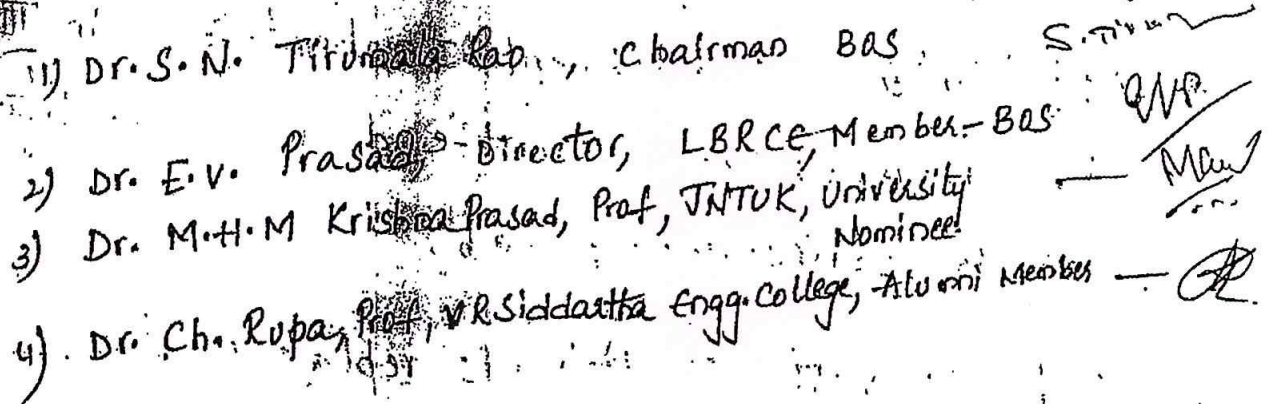 1) Dr. S. N. Tirumala Rao, Chairman BOS. S. Tirum
2) Dr. E. V. Prasad, Director, LBRCE, Member - BOS
3) Dr. M. H. M Krishna Prasad, Prof, JNTUK, University
Nominee
4) Dr. Ch. Rupa, Prof, VR Siddartha Engg. College, Alumni Member —